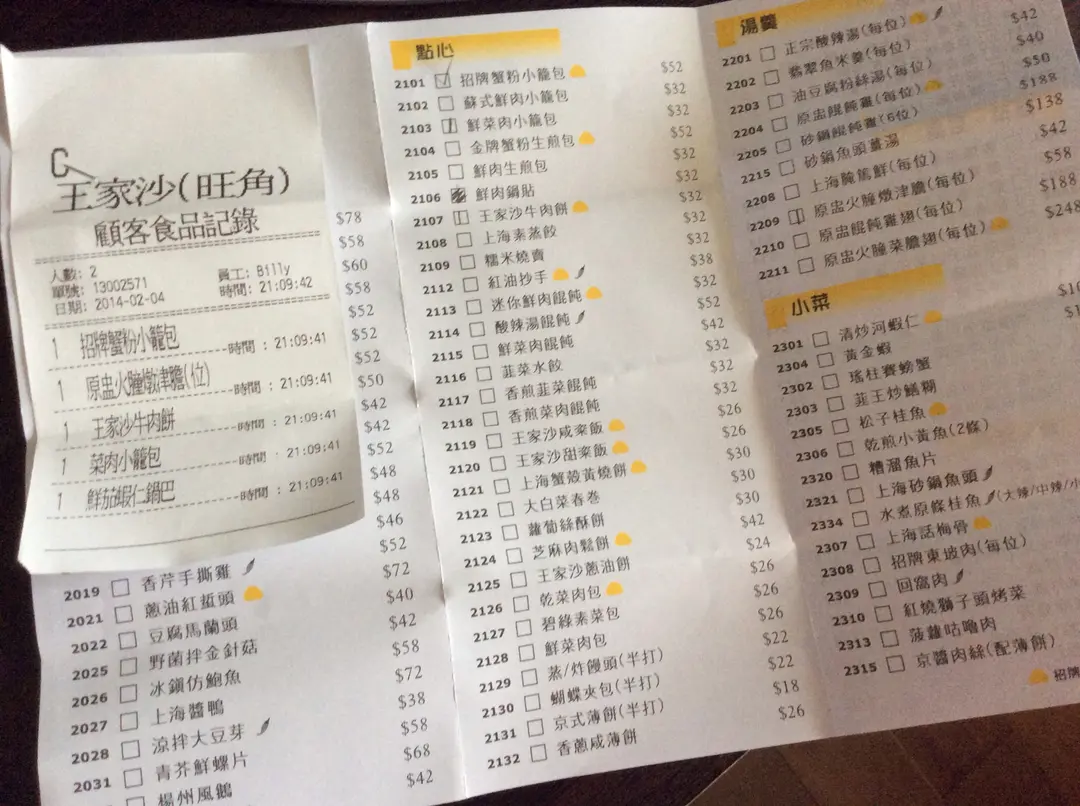 王家沙(旺角)
顧客食品記錄
人數: 2
單號: 13002571 員工: Billy
日期: 2014-02-04 時間: 21:09:42
1 招牌蟹粉小籠包
時間 : 21:09:41
1 原盅火瞳燉津膽(位)
時間 : 21:09:41
1 王家沙牛肉餅
時間 : 21:09:41
1 菜肉小籠包
時間 : 21:09:41
1 鮮茄蝦仁鍋巴
時間 : 21:09:41
$78
$58
$60
$58
$52
$52
$52
$50
$42
$42
$52
$48
$48
$46
$52
2019 香芹手撕雞 $72
2021 蔥油紅蜇頭 $40
2022 豆腐馬蘭頭 $42
2025 野菌拌金針菇 $58
2026 冰鎮仿鮑魚 $72
2027 上海醬鴨 $38
2028 涼拌大豆芽 $58
2031 青芥鮮螺片 $68
楊州風鵝 $42
點心
2101 招牌蟹粉小籠包 $52
2102 蘇式鮮肉小籠包 $32
2103 鮮菜肉小籠包 $32
2104 金牌蟹粉生煎包 $52
2105 鮮肉生煎包 $32
2106 鮮肉鍋貼 $32
2107 王家沙牛肉餅 $32
2108 上海素蒸餃 $32
2109 糯米燒賣 $38
2112 紅油抄手 $32
2113 迷你鮮肉餛飩 $52
2114 酸辣湯餛飩 $42
2115 鮮菜肉餛飩 $32
2116 韮菜水餃 $32
2117 香煎韮菜餛飩 $32
2118 香煎菜肉餛飩 $26
2119 王家沙咸粢飯 $26
2120 王家沙甜粢飯 $30
2121 上海蟹殼黃燒餅 $30
2122 大白菜春巻 $30
2123 蘿蔔絲酥餅 $42
2124 芝麻肉鬆餅 $24
2125 王家沙蔥油餅 $26
2126 乾菜肉包 $26
2127 碧綠素菜包 $26
2128 鮮菜肉包 $22
2129 蒸/炸饅頭(半打) $22
2130 蝴蝶夾包(半打) $18
2131 京式薄餅(半打) $26
2132 香蔥咸薄餅
湯羹
2201 正宗酸辣湯(每位) $42
2202 翡翠魚米羹(每位) $40
2203 油豆腐粉絲湯(每位) $50
2204 原盅餛飩雞(每位) $188
2205 砂鍋餛飩雞(6位) $138
2215 砂鍋魚頭薑湯 $42
2208 上海醃篤鮮(每位) $58
2209 原盅火瞳燉津膽(每位) $188
2210 原盅餛飩雞翅(每位) $248
2211 原盅火瞳菜膽翅(每位)
小菜
2301 清炒河蝦仁
2304 黃金蝦
2302 瑤柱賽螃蟹
2303 韮王炒鱔糊
2305 松子桂魚
2306 乾煎小黃魚(2條)
2320 糟溜魚片
2321 上海砂鍋魚頭
2334 水煮原條桂魚(大辣/中辣/小
2307 上海話梅骨
2308 招牌東坡肉(每位)
2309 回窩肉
2310 紅燒獅子頭烤菜
2313 菠蘿咕嚕肉
2315 京醬肉絲(配薄餅)
招牌